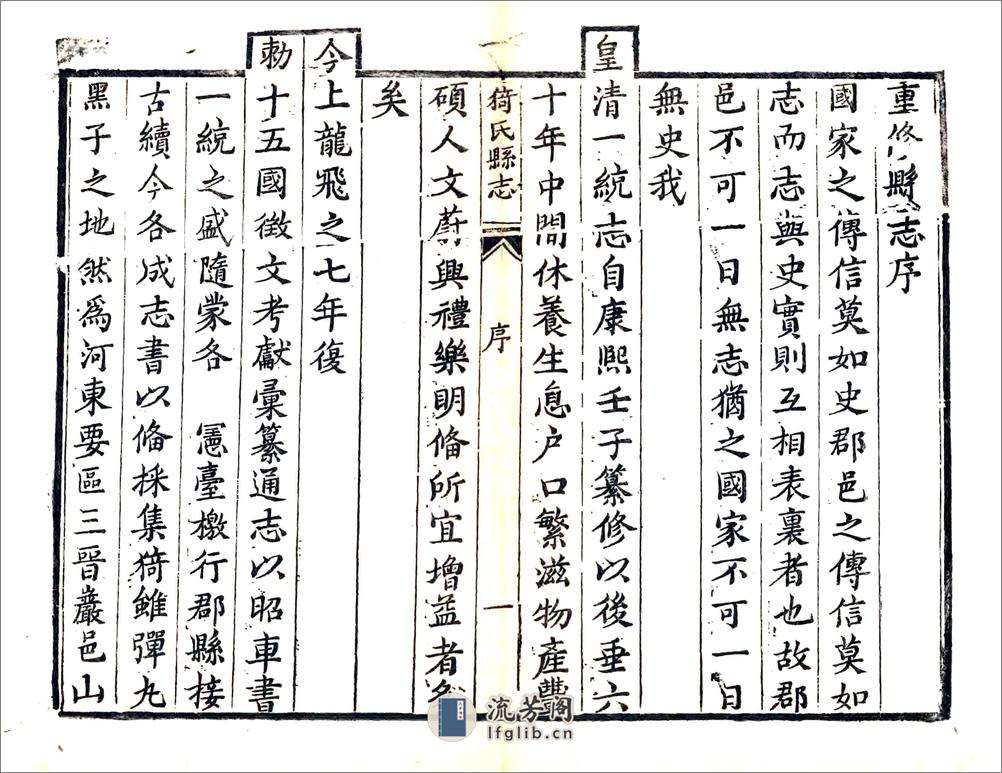 重修縣志序
國家之傳信莫如史郡邑之傳信莫如
志而志與史實則互相表裏者也故郡
邑不可一日無志猶之國家不可一日
無史我
皇清一統志自康熙壬子纂修以後垂六
十年中間休養生息户口繁滋物產豐
猗氏縣志 序 一
碩人文蔚興禮樂明俻所宜增益者多
矣
今上龍飛之七年復
勅十五國徵文考獻彙纂通志以昭車書
一統之盛隨蒙各 憲臺檄行郡縣接
古續今各成志書以俻採集猗雖彈丸
黑子之地然爲河東要區三晉巖邑山
流芳閣
lfglib.cn